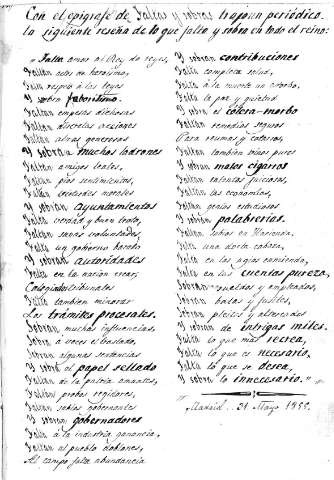 Con el epigrafe de Faltas y sobras trajo un periódico
la siguiente reseña de lo que falta y sobra en todo el reino:
"Falta amor al Rey de reyes,
Faltan actos de heroismo,
Falta respeto á las leyes
Y sobra favoritismo.
Faltan empresas dichosas
Faltan discretas
Faltan almas generosas
Y sobran muchos ladrones
Faltan amigos leales,
Faltan píos sentimientos,
Faltan
Y sobran ayuntamientos
Falta verdad y buen trato,
Faltan sanas voluntades,
Falta un gobierno barato
Y sobran autoridades
Falta en la nacion
Colegiados tribunales
Falta tambien minorar
Los trámites procesales.
Sobran muchas influencias,
Sobra á veces el
Sobran algunas sentencias
Y sobra el papel sellado
Faltan de la patria amantes,
Faltan probos regidores,
Faltan sabios gobernantes
Y sobran gobernadores
Falta á la industria ganancia,
Faltan al pueblo doblones,
Al campo falta abundancia
Y sobran contribuciones
Falta completa salud,
Falta á la muerte un
Falta la paz y quietud
Y sobra el cólera-morbo
Faltan remedios seguros
Para reumas y
Faltan tambien vinos puros
Y sobran malos cigarros
Faltan talentos juiciosos,
Faltan las economías,
Faltan genios estudiosos
Y sobran palabrerías.
Faltan sabios en Hacienda,
Falta una docta cabeza,
Falta en los agios enmienda,
Falta en las cuentas pureza,
Sobran sueldos y empleados,
Sobran balas y fusiles,
Sobran pleitos y
Y sobran de intrigas miles.
Falta lo que mas recrea,
Falta lo que es necesario,
Falta lo que se desea,
Y sobra lo innecesario."
Madrid. 31 Mayo 1888.